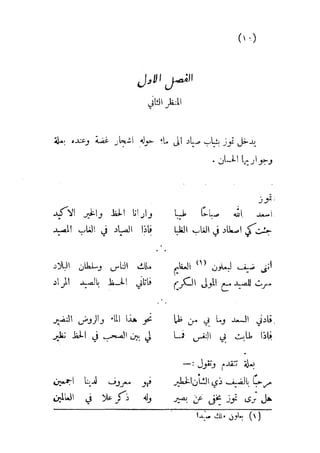 (١٠)
الفصل الاول
المنظر الثاني
يدخل تموز بثياب صياد الى ماء حوله اشجار غضة وعنده بعلة
وجواريها الحسان .
تموز
اسعد الله صباحاً طيبا وارانا الحظ والخير الاكيد
جئت كي اصطاد في الغاب الظبا فاذا الصياد في الغاب المصيد
انني ضيف لبعلون (١) العظيم ملك الناس وسلطان البلاد
سرت للصيد مع المولى الكريم فاتاني الحظ بالصيد المراد
قادني السعد وما بي من ظما نحو هذا الماء والروض النضير
فاذا طابت بي النفس فما لي بين الصحب في الحظ نظير
بعلة تتقدم وتقول :—
مرحباً بالضيف ذي الشأن الخطير فهو معروف لدينا اجمعين
هل ترى تموز يخفى عن بصير وله ذكر علا في العالمين
(١) بعلون ملك صيدا